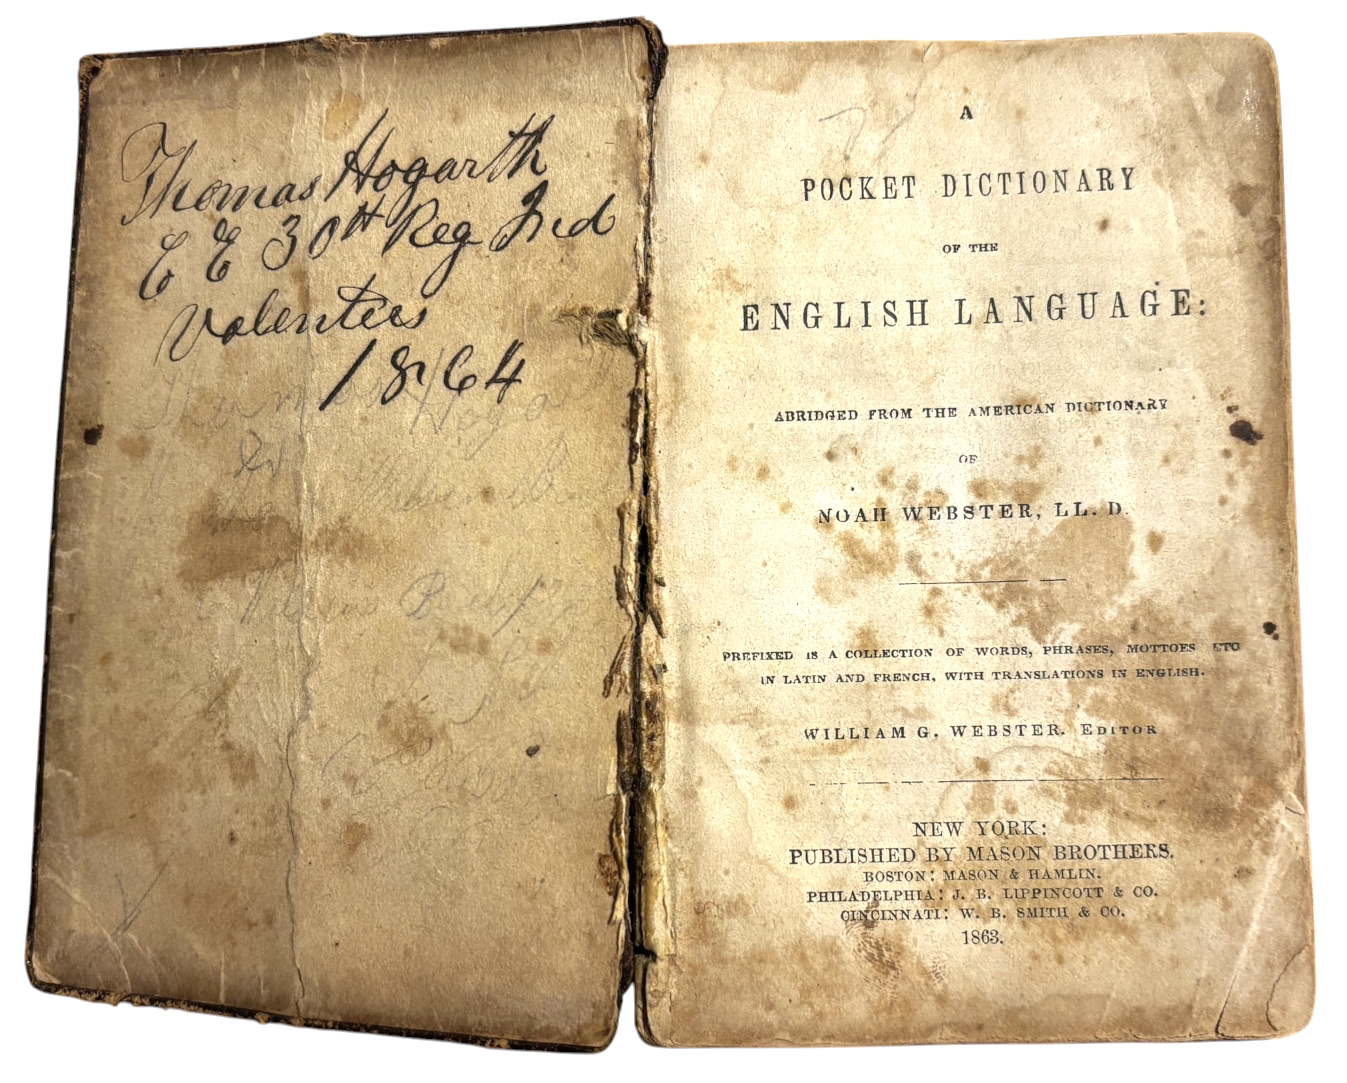 Thomas Hogarth
C E 30th Reg Ind
Volenters
1864
A
POCKET DICTIONARY
OF THE
ENGLISH LANGUAGE:
ABRIDGED FROM THE AMERICAN DICTIONARY
OF
NOAH WEBSTER, LL. D.
PREFIXED IS A COLLECTION OF WORDS, PHRASES, MOTTOES ETC
IN LATIN AND FRENCH, WITH TRANSLATIONS IN ENGLISH.
WILLIAM G. WEBSTER. EDITOR
NEW YORK:
PUBLISHED BY MASON BROTHERS.
BOSTON: MASON & HAMLIN.
PHILADELPHIA: J. B. LIPPINCOTT & CO.
CINCINNATI: W. B. SMITH & CO.
1863.